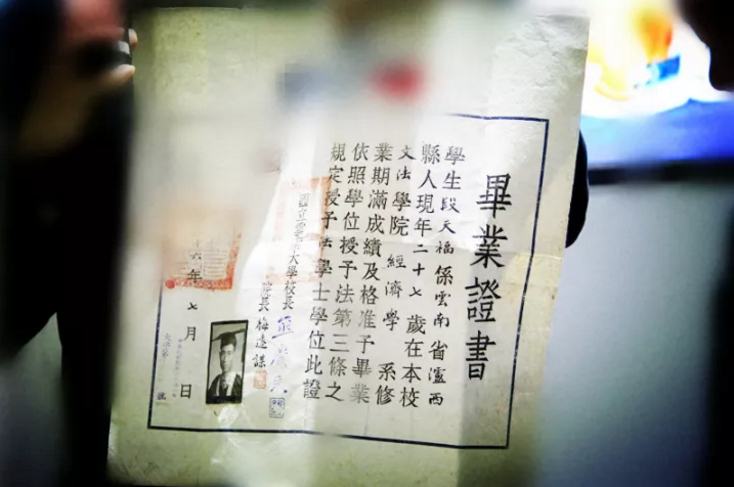 畢業證書
學生段天福係雲南省瀘西
縣人現年二十七歲在本校
文法學院經濟學系修
業期滿成績及格准予畢業
依照學位授予法第三條之
規定授予法學士學位此證
國立雲南大學校長熊慶來
院長梅遠謀
十六年七月日